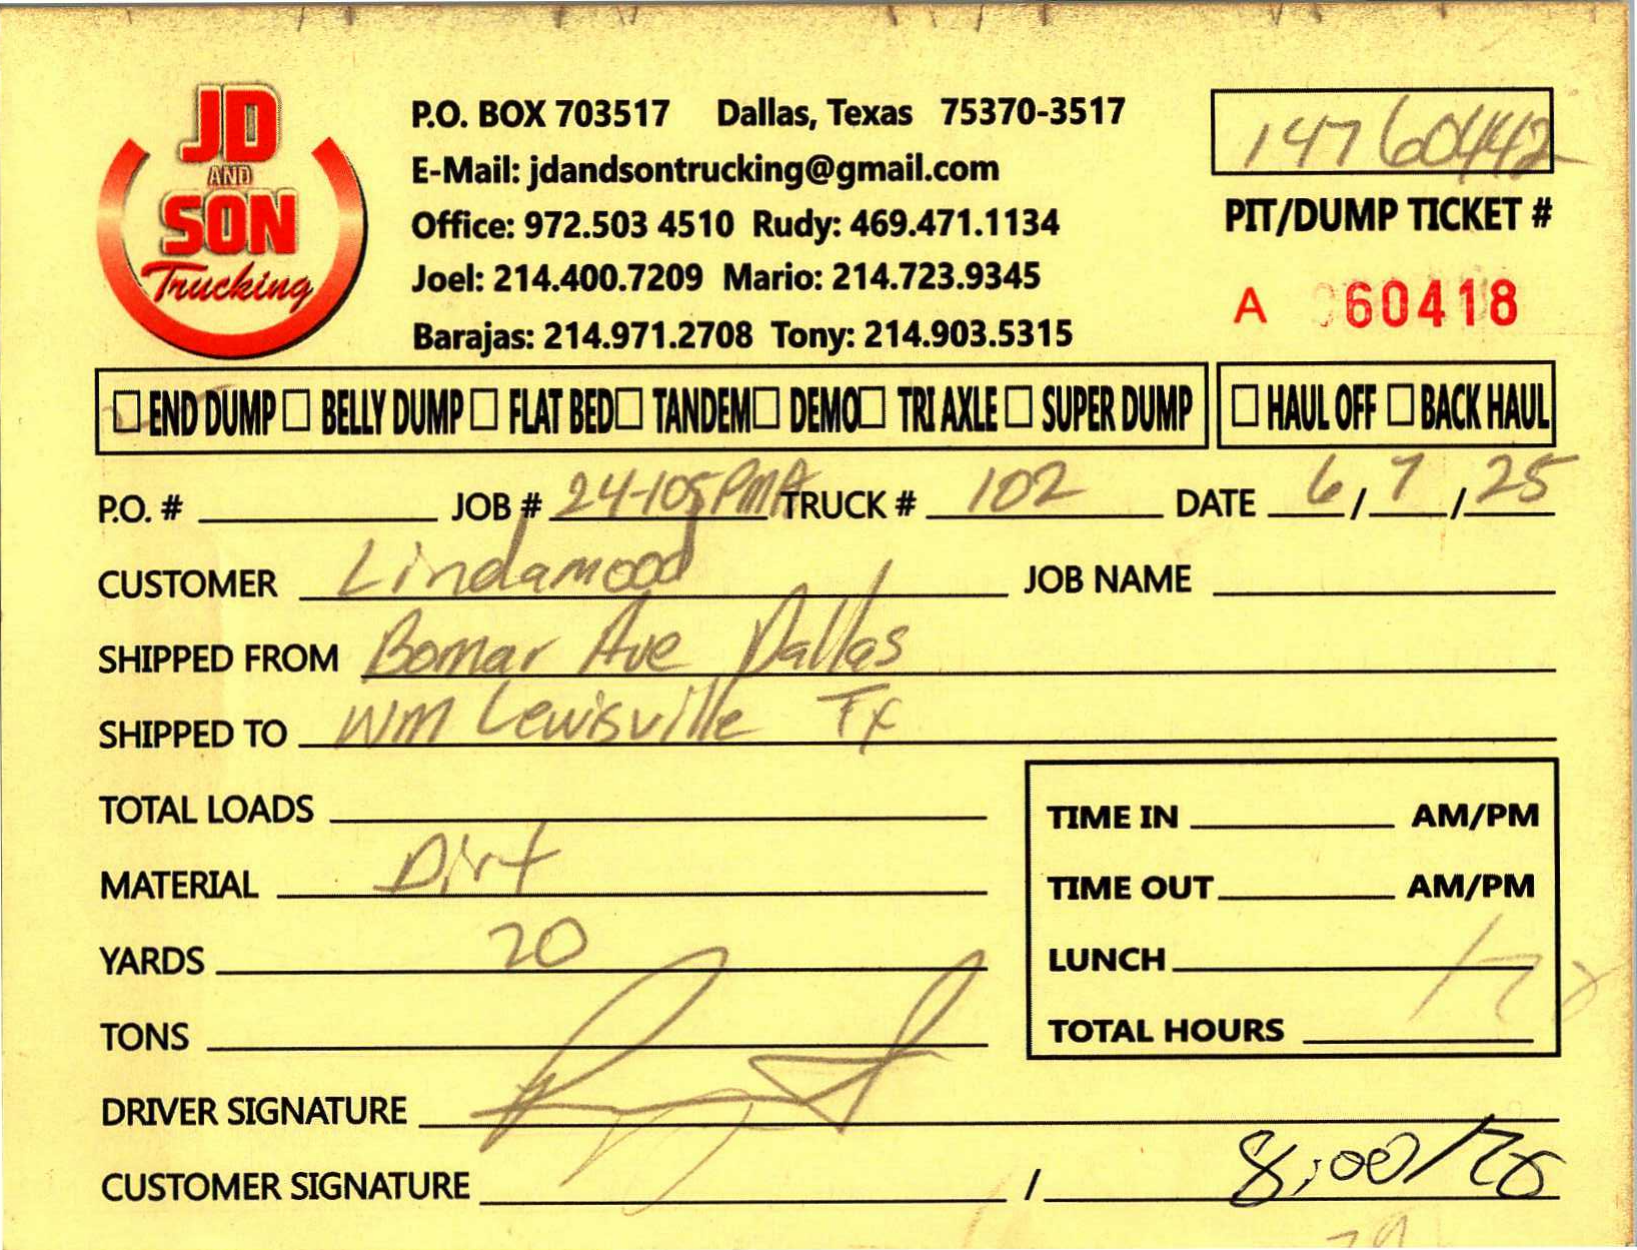 JD
AND
SON
Trucking
P.O. BOX 703517 Dallas, Texas 75370-3517
E-Mail: jdandsontrucking@gmail.com
Office: 972.503 4510 Rudy: 469.471.1134
Joel: 214.400.7209 Mario: 214.723.9345
Barajas: 214.971.2708 Tony: 214.903.5315
14760442
PIT/DUMP TICKET #
A 060418
END DUMP BELLY DUMP FLAT BED TANDEM DEMO TRI AXLE SUPER DUMP HAUL OFF BACK HAUL
P.O. # JOB # 24-105PMA TRUCK # 102 DATE 6/7/25
CUSTOMER Lindamood JOB NAME
SHIPPED FROM Bomar Ave Dallas
SHIPPED TO WM Lewisville Tx
TOTAL LOADS
MATERIAL Dirt
YARDS 20
TONS
TIME IN AM/PM
TIME OUT AM/PM
LUNCH
TOTAL HOURS
DRIVER SIGNATURE
CUSTOMER SIGNATURE /